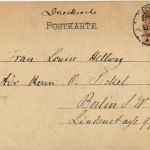 Drucksache
POSTKARTE
Frau Louise Hellwag
Adr Herrn O. Stobel
Berlin S.W.
Lindenstraße